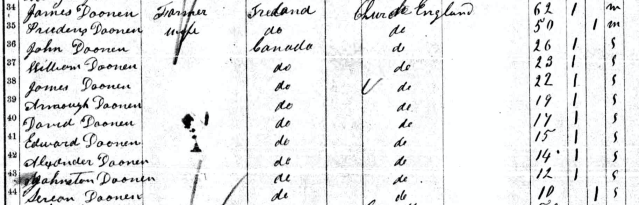 34 James Doonen Farmer Ireland Church England 62 1 m
35 Prudens Doonen wife do do 50 1 m
36 John Doonen Canada do 26 1 s
37 William Doonen do do 23 1 s
38 James Doonen do do 22 1 s
39 Armough Doonen do do 19 1 s
40 David Doonen do do 17 1 s
41 Edward Doonen do do 15 1 s
42 Alexander Doonen do do 14 1 s
43 Johnston Doonen do do 12 1 s
44 Doonen do do 10 1 s